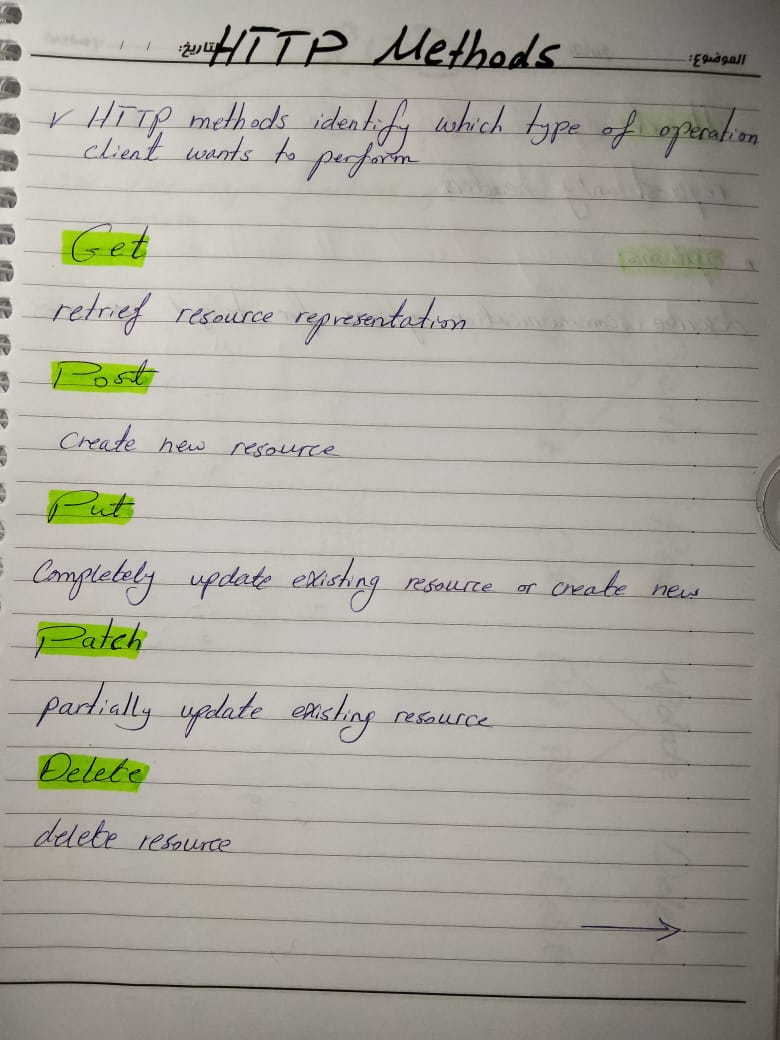 الموضوع: HTTP Methods التاريخ: / /
✓ HTTP methods identify which type of operation
client wants to perform
Get
retrief resource representation
Post
Create new resource
Put
Completely update existing resource or create new
Patch
partially update existing resource
Delete
delete resource
→